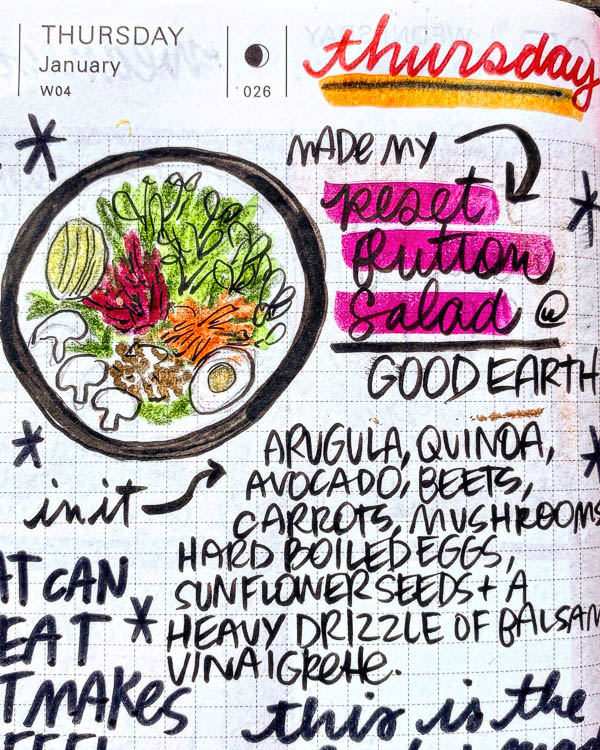 THURSDAY
January
W04
026
thursday
MADE MY
reset
button
salad @
GOOD EARTH
in it
ARUGULA, QUINOA,
AVOCADO, BEETS,
CARROTS, MUSHROOMS
HARD BOILED EGGS,
SUNFLOWER SEEDS + A
HEAVY DRIZZLE OF BALSAM
VINAIGRETTE.
AT CAN
EAT
T MAKES
FEEL
this is the